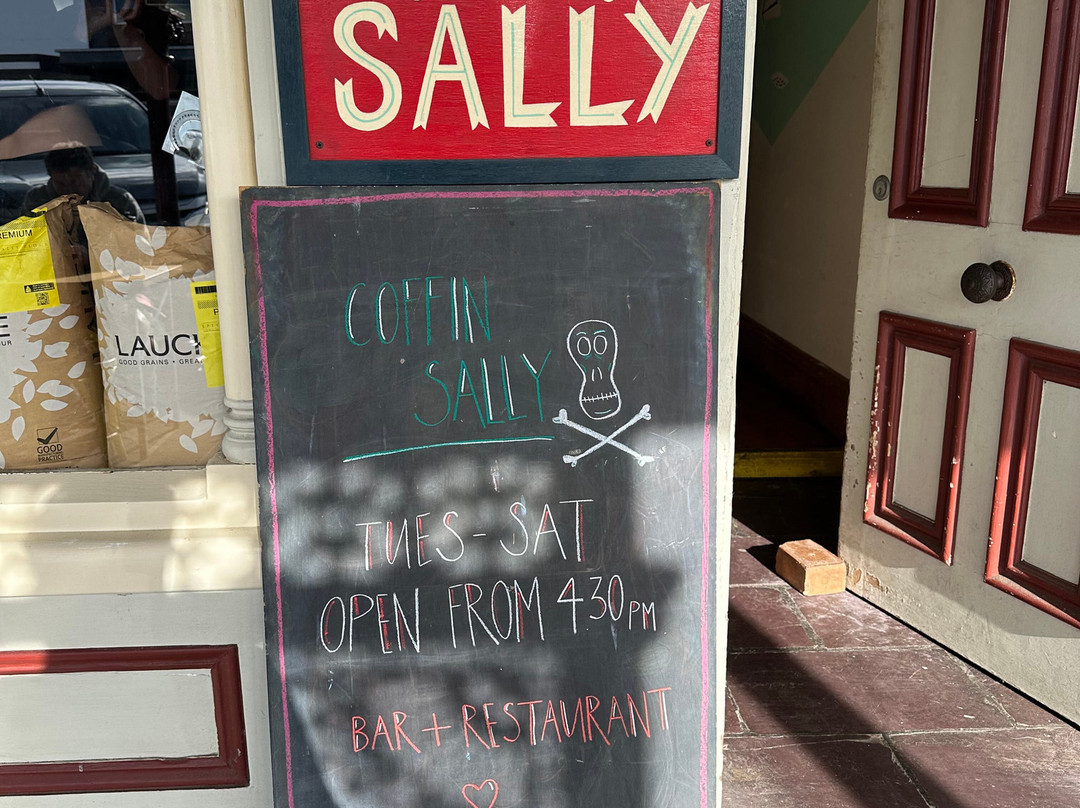 SALLY
COFFIN
SALLY
TUES - SAT
OPEN FROM 4.30PM
BAR + RESTAURANT
LAUC
GOOD GRAINS • GREA
GOOD
PRACTICE